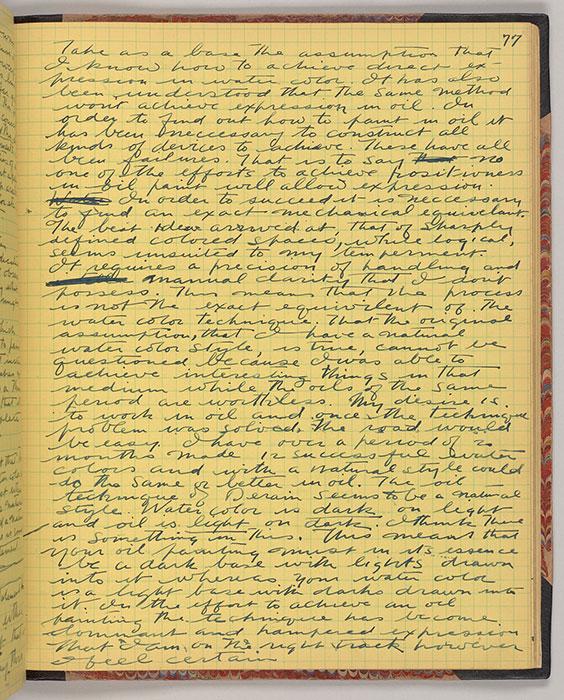 77
Take as a base the assumption that
I know how to achieve direct ex-
pression in water color. It has also
been understood that the same method
won't achieve expression in oil. In
order to find out how to paint in oil it
has been neccessary to construct all
kinds of devices to achieve. These have all
been failures. That is to say no
one of the efforts to achieve positioners
in oil paint will allow expression.
In order to succeed it is neccessary
to find an exact mechanical equivelant.
The best idea arrived at, that of sharply
defined colored spaces, while logical,
seems unsuited to my temperment.
It requires a precision of handling and
manual clarity that I don't
possess. This means that the process
is not the exact equivelent of the
water color technique. That the original
assumption, that I have a natural
water color style, is true, cannot be
questioned because I was able to
achieve interesting things in that
medium while the oils of the same
period are worthless. My desire is
to work in oil and once the technique
problem was solved the road would
be easy. I have over a period of 2
months made 12 successful water
colors and with a natural style could
do the same or better in oil. The oil
technique of Derain seems to be a natural
style. Water color is dark on light
and oil is light on dark. I think there
is something in this. This meant that
your oil painting must in its essence
be a dark base with lights drawn
into it whereas your water color
is a light base with darks drawn into
it. In the effort to achieve an oil
painting the technique has become
dominant and hampered expression
That I am on the right track however
I feel certain